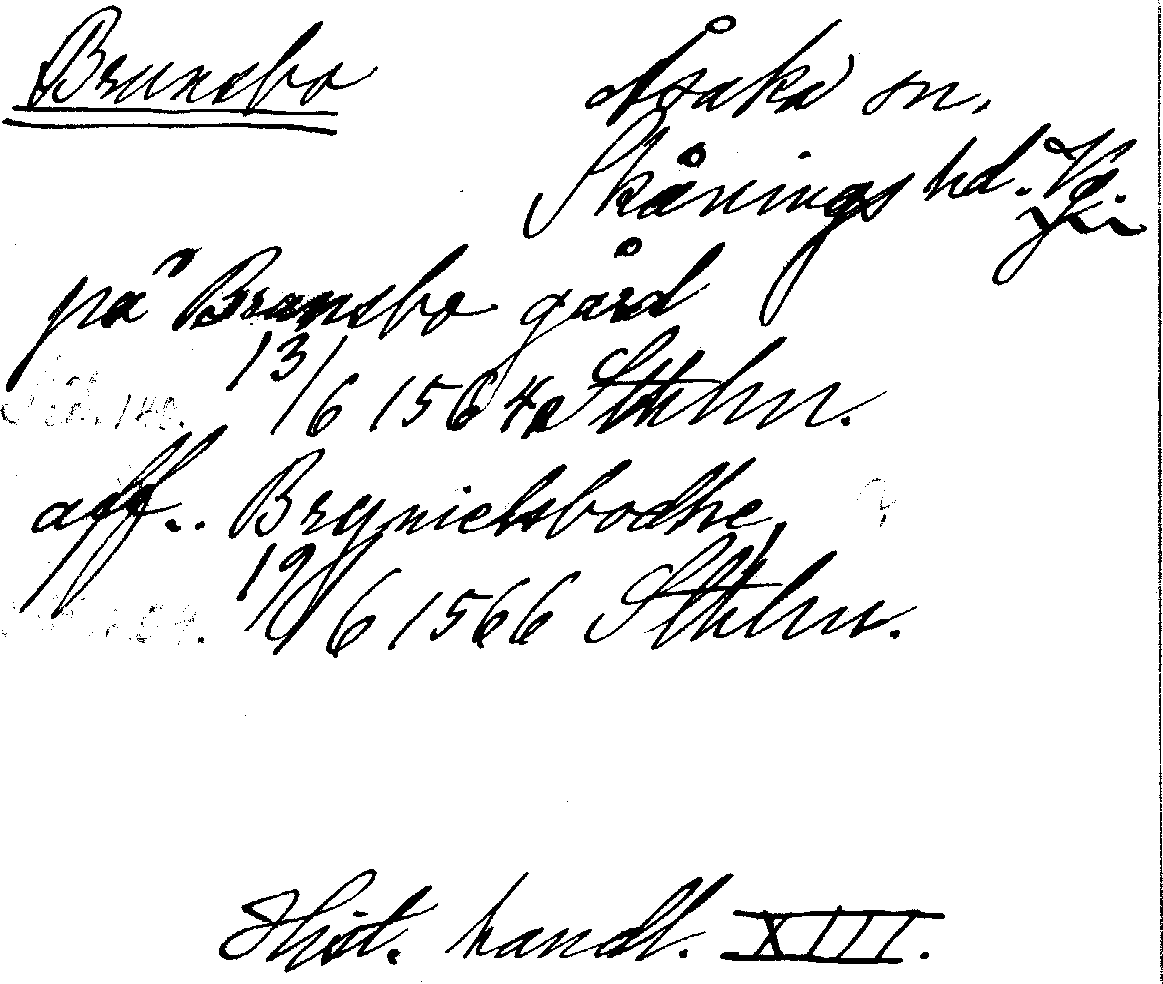 Brunsbo
Åsaka sn,
Skånings hd. Vg.
på Brunsbo gård
13/6 1564 Sthlm.
Sid. 140.
aff.. Brynielsbodhe,
19/6 1566 Sthlm.
Hist. handl. XIII.